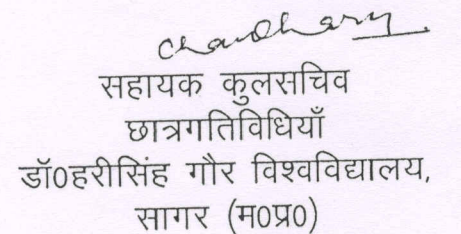 Chaudhary
सहायक कुलसचिव
छात्रगतिविधियाँ
डॉ0हरीसिंह गौर विश्वविद्यालय,
सागर (म0प्र0)